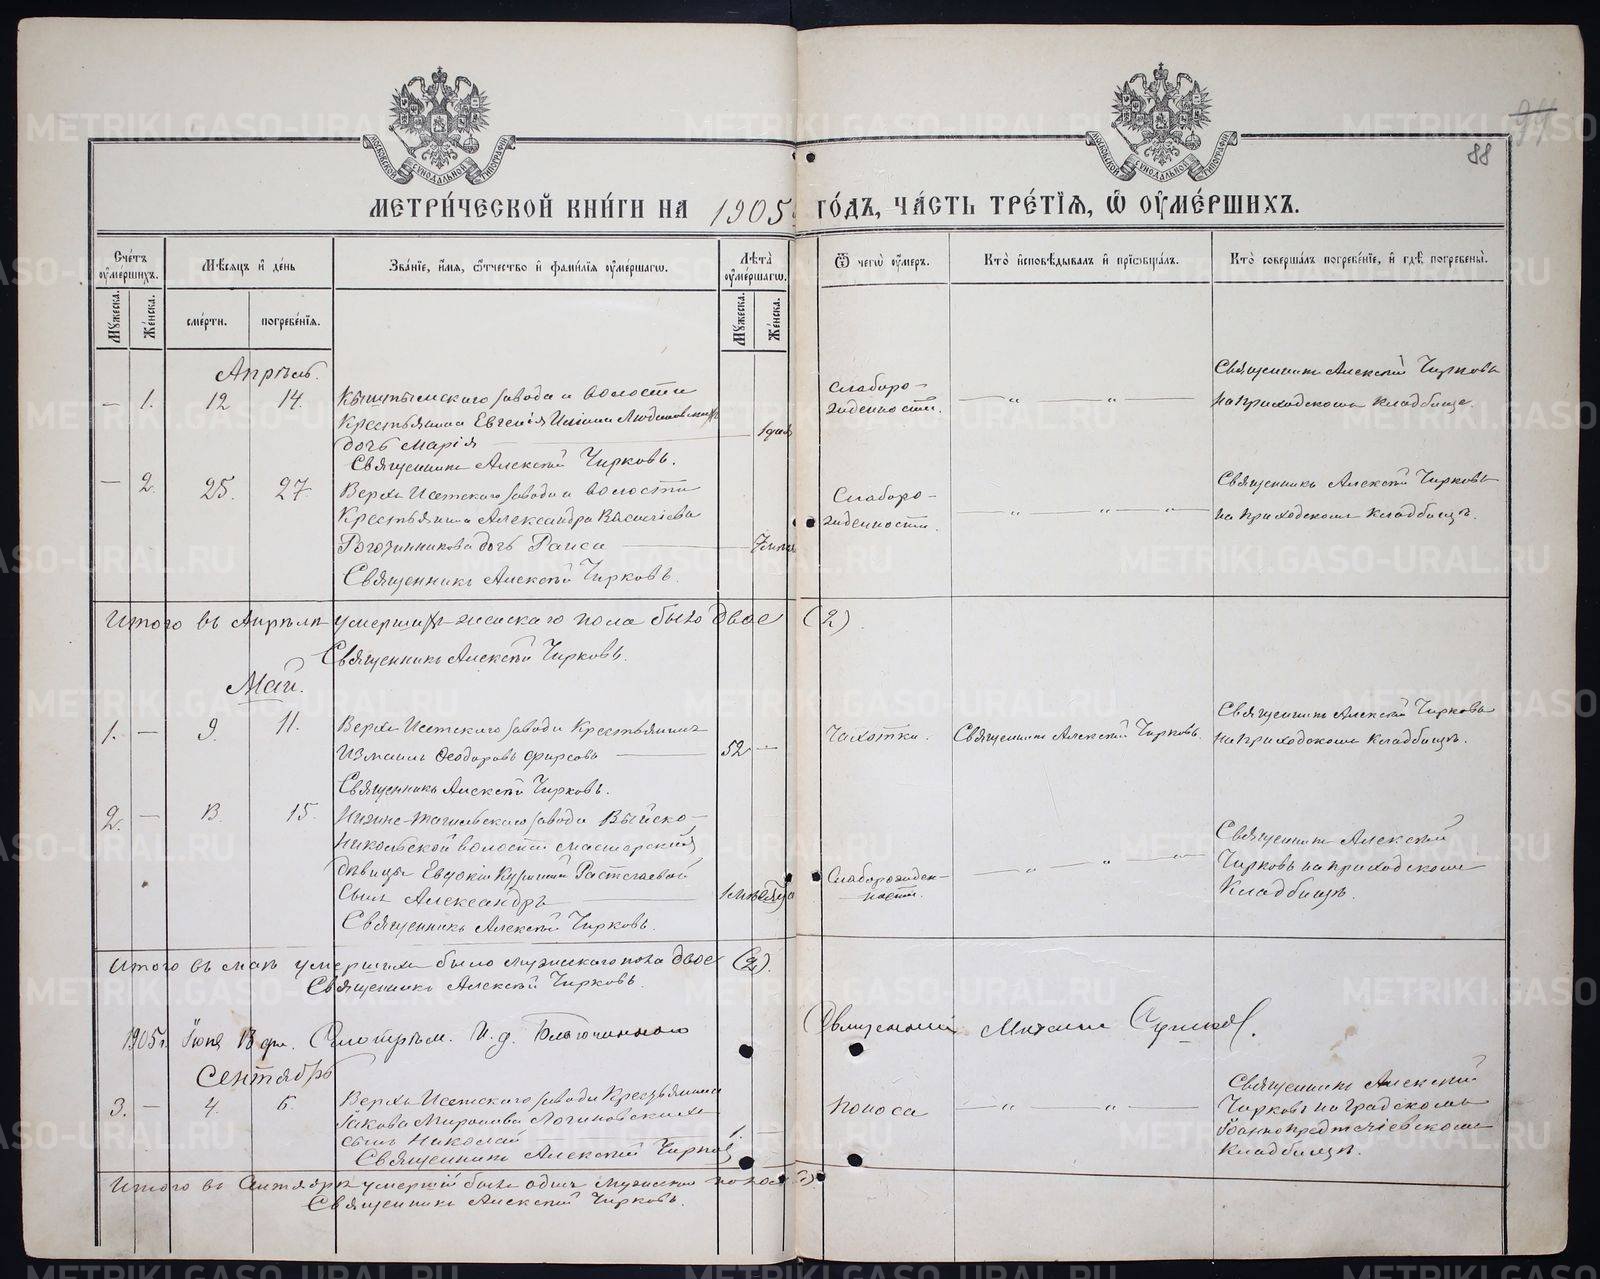 94
88
МОСКОВСКОЙ СѴНОДАЛЬНОЙ ТИПОГРАФІИ
МОСКОВСКОЙ СѴНОДАЛЬНОЙ ТИПОГРАФІИ
МЕТРИ́ЧЕСКОЙ КНИ́ГИ НА 1905 ГО́ДЪ, ЧА́СТЬ ТРЕ́ТІѦ, Ѿ ОУ҆МЕ́РШИХЪ.
Сче́тъ оу҆ме́ршихъ.
Мѣ́сяцъ и҆ де́нь
Зва́нїе, и҆́мя, ѻ҆́тчество и҆ фами́лїя оу҆ме́ршагѡ.
Лѣ́та оу҆ме́ршагѡ.
Ѿ чегѡ̀ оу҆́меръ.
Кто̀ и҆сповѣ́дывалъ и҆ прїѡбща́лъ.
Кто̀ соверша́лъ погребе́нїе, и҆ гдѣ̀ погребены̀.
Мꙋ́жеска.
Же́нска.
сме́рти.
погребе́нїя.
Мꙋ́жеска.
Же́нска.
Апрѣль.
— 1. 12 14. Кыштымскаго завода и волости
Крестьянина Евгенія
дочь Марія — 1 дня
Священникъ Алексѣй Чирковъ.
Слаборо-
жденности.
— " — " —
Священникъ Алексѣй Чирковъ
на приходскомъ кладбищѣ.
— 2. 25. 27. Верхъ-Исетскаго завода и волости
Крестьянина Александра Васильева
Рогозинникова дочь Раиса —
Священникъ Алексѣй Чирковъ.
Слаборо-
жденности.
— " — " —
Священникъ Алексѣй Чирковъ
на приходскомъ кладбищѣ.
Итого въ Апрѣлѣ умершихъ женскаго пола было двое (2).
Священникъ Алексѣй Чирковъ.
Май.
1. — 9. 11. Верхъ-Исетскаго завода Крестьянинъ
Измаилъ Ѳеодоровъ Фирсовъ — 52 —
Священникъ Алексѣй Чирковъ.
Чахотки.
Священникъ Алексѣй Чирковъ.
Священникъ Алексѣй Чирковъ
на приходскомъ кладбищѣ.
2. — 13. 15. Нижне-Тагильскаго завода Выйско-
Никольской волости мастерской
дѣвицы Евдокіи Растегаевой
сынъ Александръ — 1 мѣсяца
Священникъ Алексѣй Чирковъ.
Слаборожден-
ности.
— " — " —
Священникъ Алексѣй
Чирковъ на приходскомъ
кладбищѣ.
Итого въ маѣ умершихъ было мужескаго пола двое (2).
Священникъ Алексѣй Чирковъ.
1905 г. Іюня 13 дн. Смотрѣлъ. И. д. Благочиннаго Священникъ Михаилъ
Сентябрь
3. — 4. 6. Верхъ-Исетскаго завода Крестьянина
Іакова Миронова Логиновскихъ
сынъ Николай 1. —
Священникъ Алексѣй Чирковъ
Поноса
— " — " —
Священникъ Алексѣй
Чирковъ на градскомъ
Іоанно-Предтечевскомъ
кладбищѣ.
Итого въ Сентябрѣ умершій былъ одинъ мужеска пола
Священникъ Алексѣй Чирковъ.
METRIKI.GASO-URAL.RU